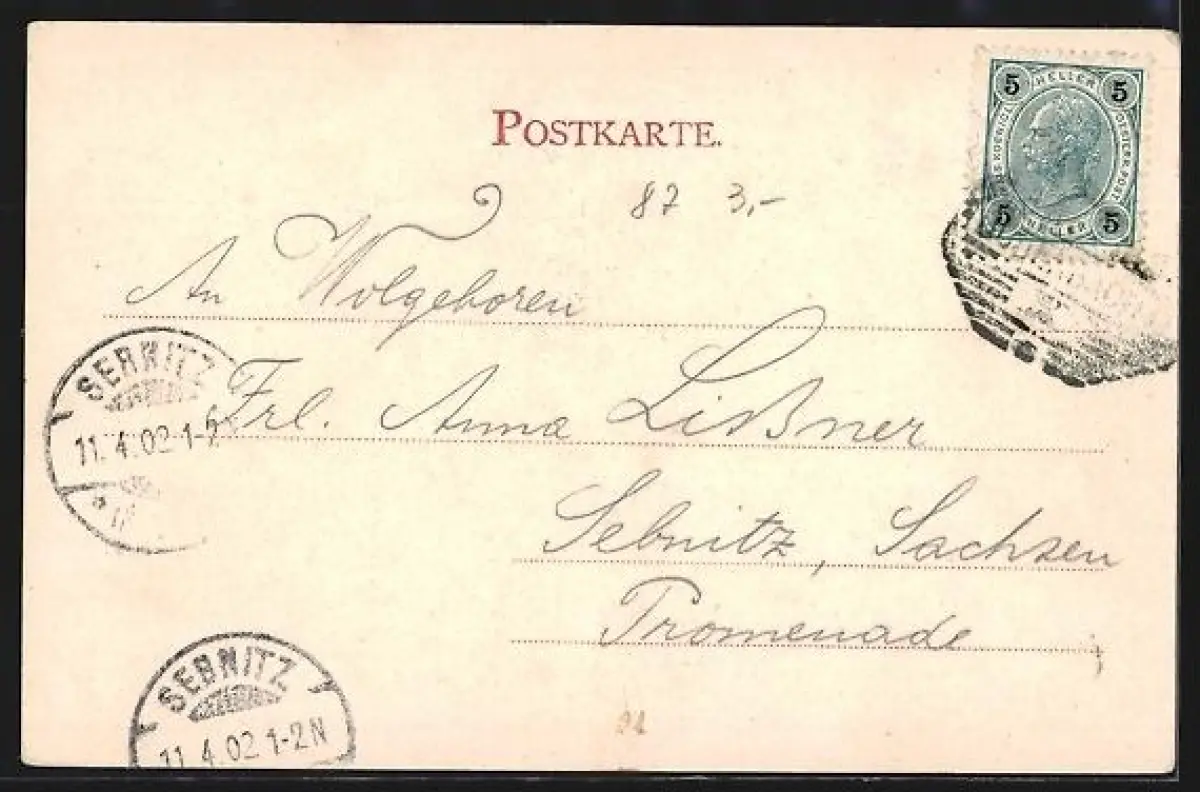 POSTKARTE.
5 HELLER 5
5 HELLER 5
87 3,-
An Wolgeboren
Frl. Anna Lißner
Sebnitz, Sachsen
Promenade
SEBNITZ
11.4.02 1-2
SEBNITZ
11.4.02 1-2N